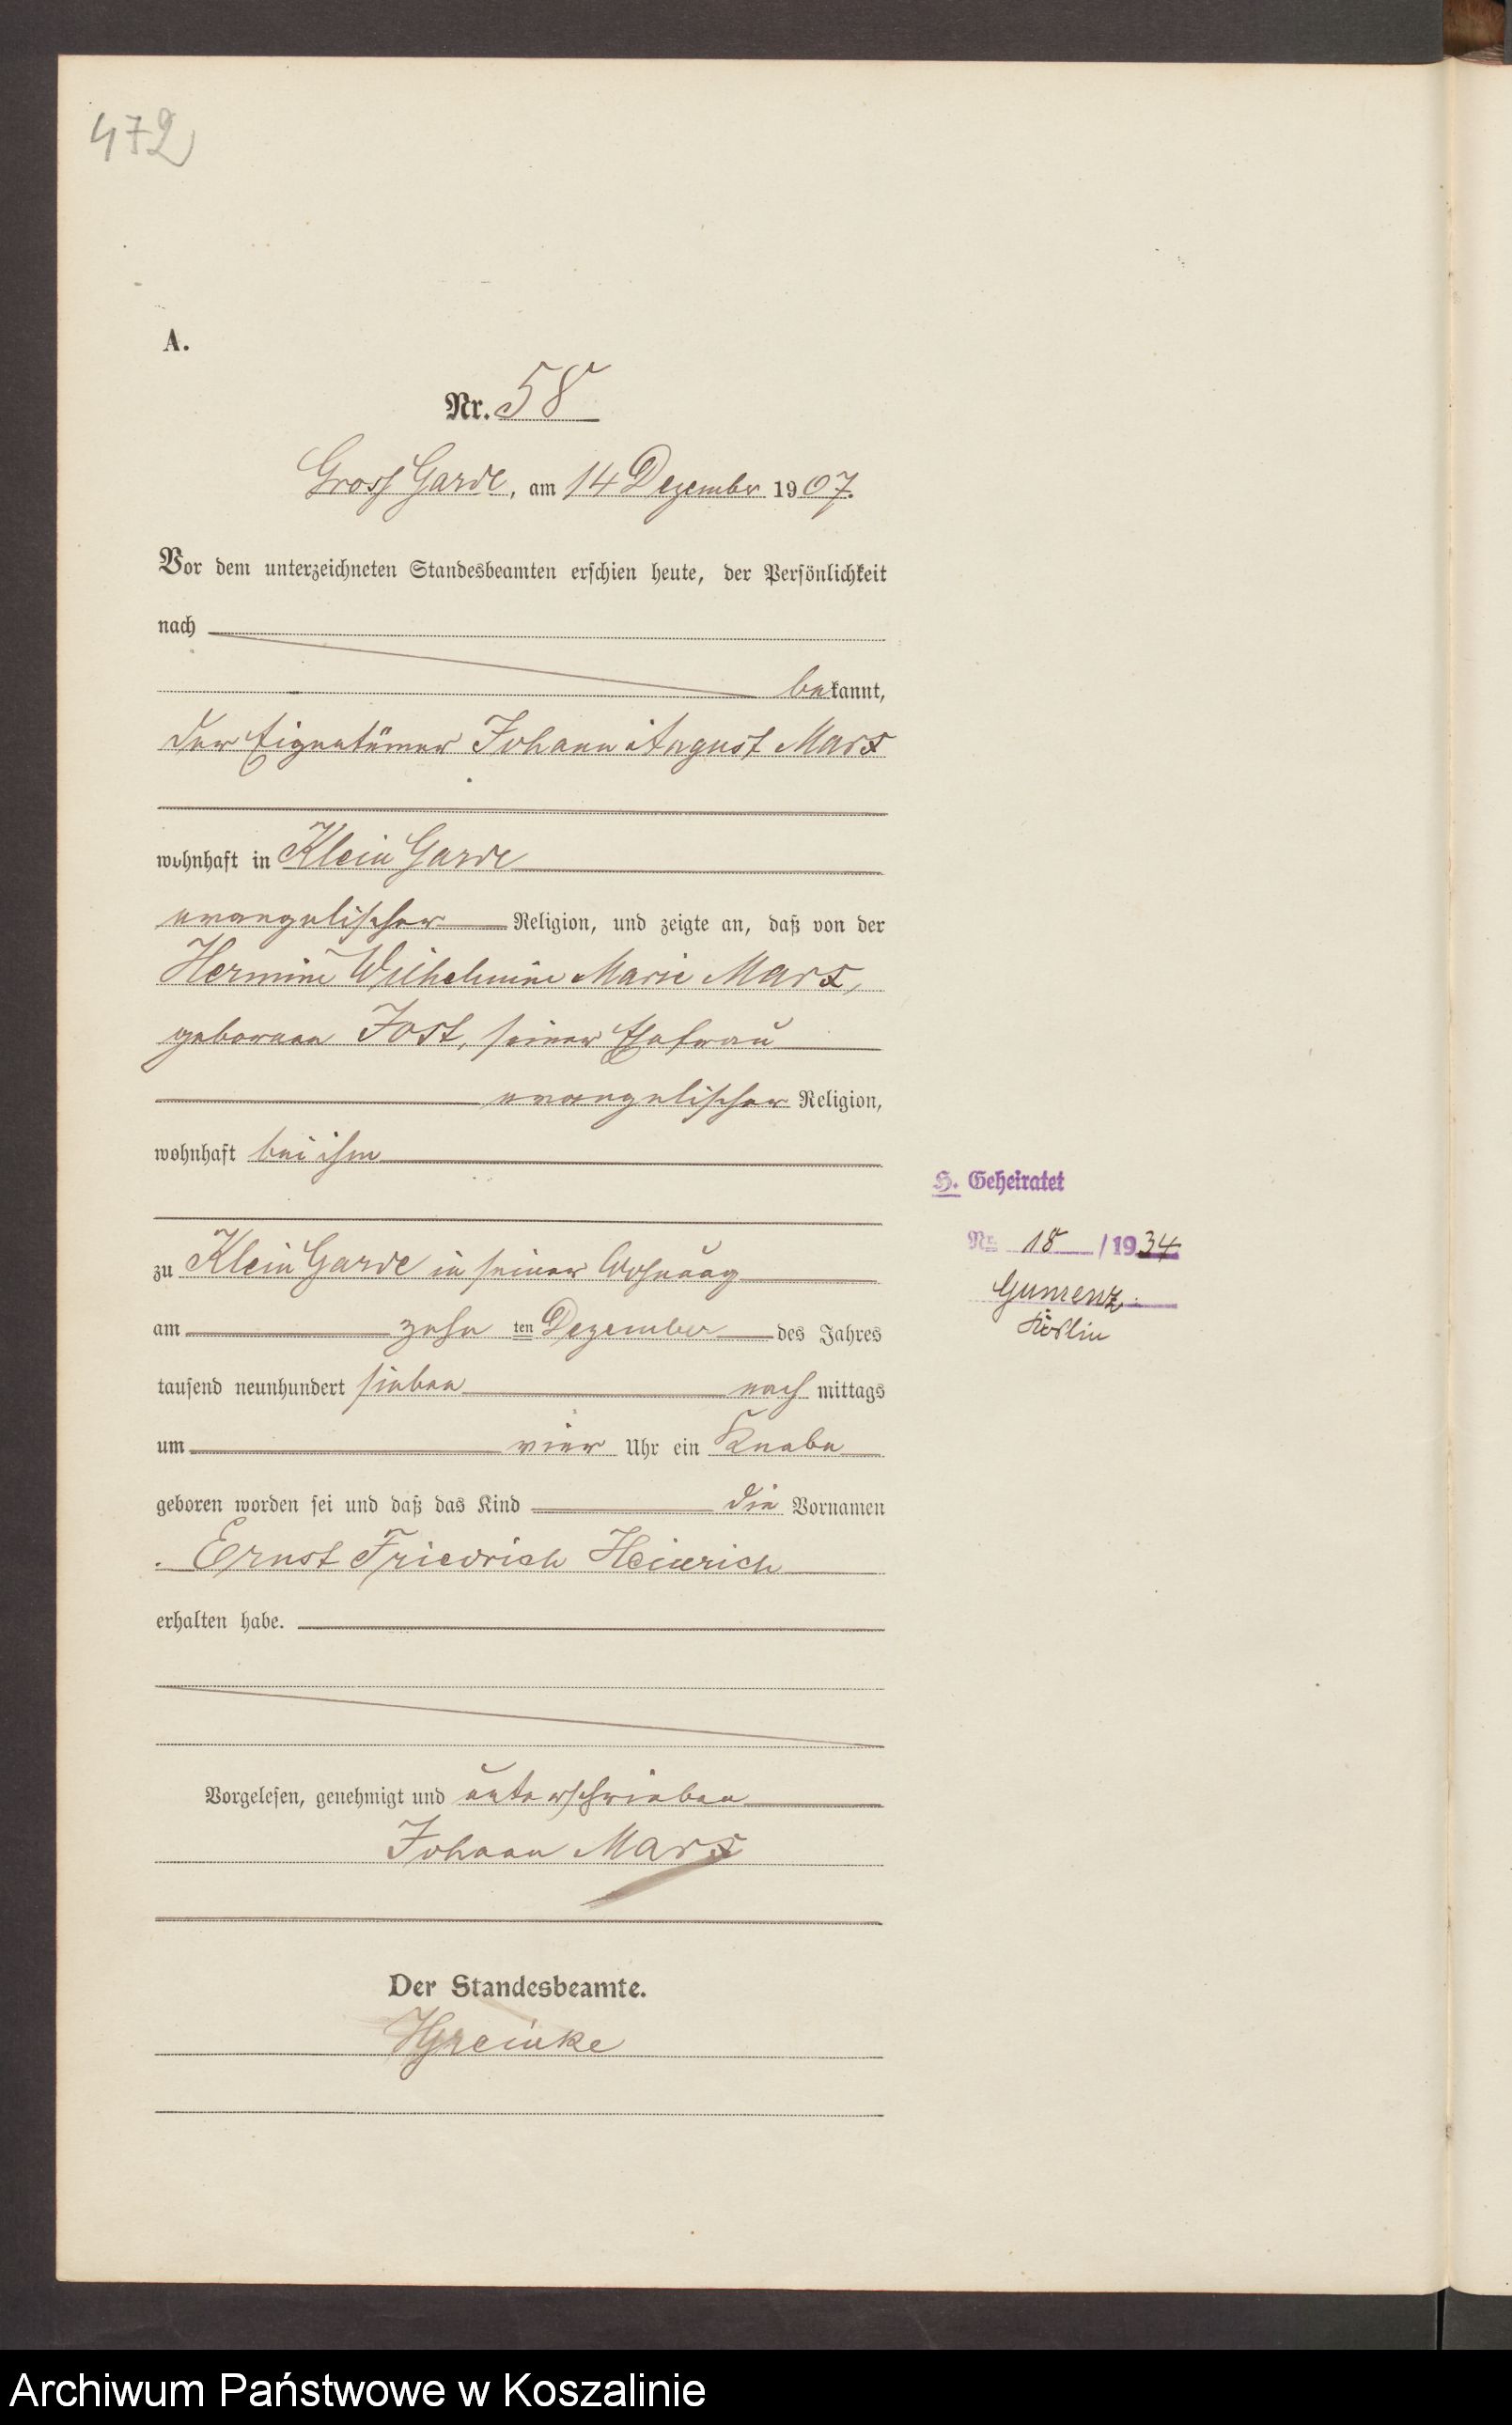 472
A.
Nr. 58
Gross Garde, am 14 Dezember 1907.
Vor dem unterzeichneten Standesbeamten erschien heute, der Persönlichkeit
nach
bekannt,
der Eigentümer Johann August Marx
wohnhaft in Klein Garde
evangelischer Religion, und zeigte an, daß von der
Hermine Wilhelmine Marie Marx,
geborenen Jost, seiner Ehefrau
evangelischer Religion,
wohnhaft bei ihm
zu Klein Garde in seiner Wohnung
am zehn ten Dezember des Jahres
tausend neunhundert sieben nach mittags
um vier Uhr ein Knabe
geboren worden sei und daß das Kind die Vornamen
Ernst Friedrich Heinrich
erhalten habe.
Vorgelesen, genehmigt und unterschrieben
Johann Marx
Der Standesbeamte.
H. Geheiratet
Nr. 18 / 1934
Gumenz,
Köslin
Archiwum Państwowe w Koszalinie